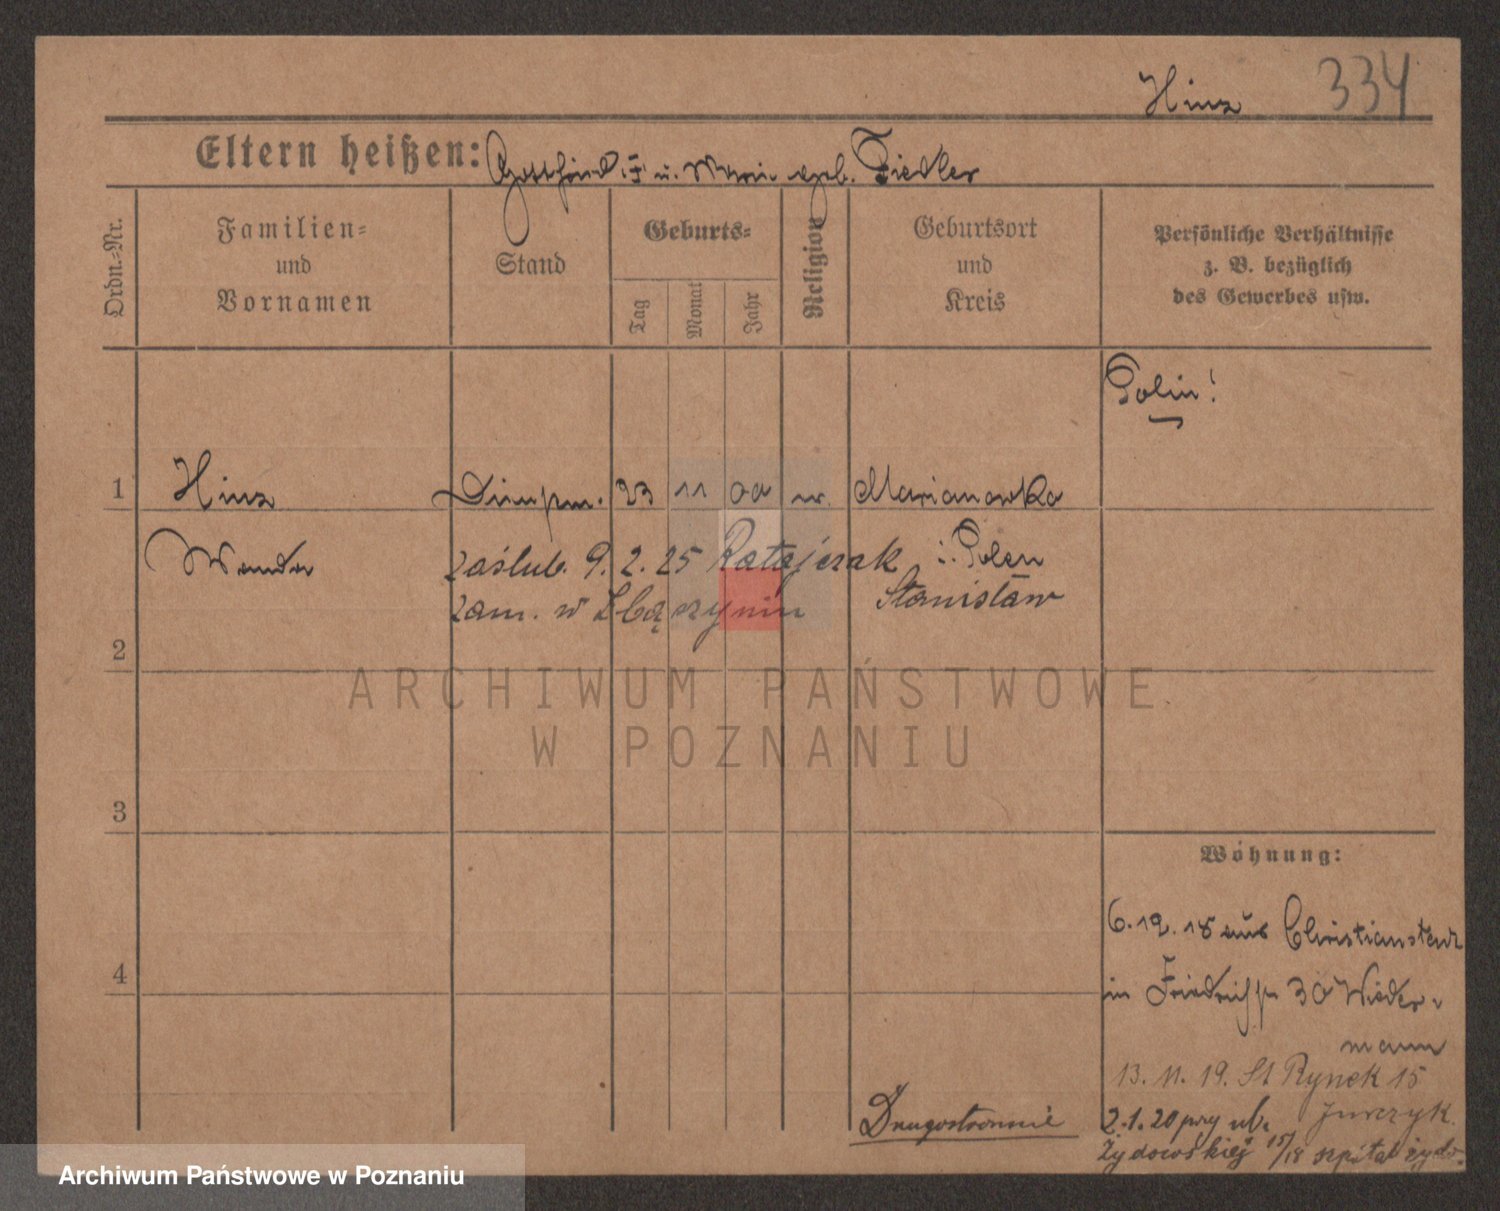 Hinz 334
Eltern heißen: Gottfried F u. Marie geb. Fiedler
Ordn.-Nr.
Familien-
und
Vornamen
Stand
Geburts-
Tag
Monat
Jahr
Religion
Geburtsort
und
Kreis
Persönliche Verhältnisse
z. B. bezüglich
des Gewerbes usw.
Polin!
1 Hinz 23 11 00 Marianowka
Wanda zaślub. 9.2.25 Ratajczak i. Polen
zam. w Zbąszyniu Stanisław
2
3
4
ARCHIWUM PAŃSTWOWE
W POZNANIU
Wohnung:
6.12.18 aus
in Friedrichstr 30 Wieder-
mann
13.11.19. St Rynek 15
Jurczyk
2.1.20 przy ul.
Żydowskiej 15/18 szpital żydo.
Drugostronnie
Archiwum Państwowe w Poznaniu